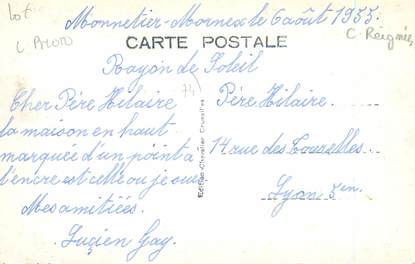 Lot
Monnetier-Mornex le 6 août 1955.
CARTE POSTALE
Rayon de Soleil
74
Cher Père Hilaire
la maison en haut
marquée d'un point à
l'encre est celle ou je suis.
Mes amitiées.
Luçien Gay.
Edition Chevalier Cruseilles
Père Hilaire.
14 rue des Tourelles
Lyon 5em.